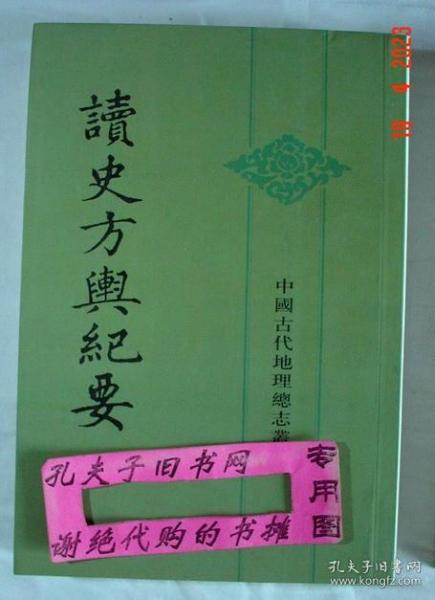 讀史方輿紀要
中國古代地理總志叢
孔夫子旧书网
谢绝代购的书摊
专用图
18 4 2023
孔夫子旧书网
www.kongfz.com